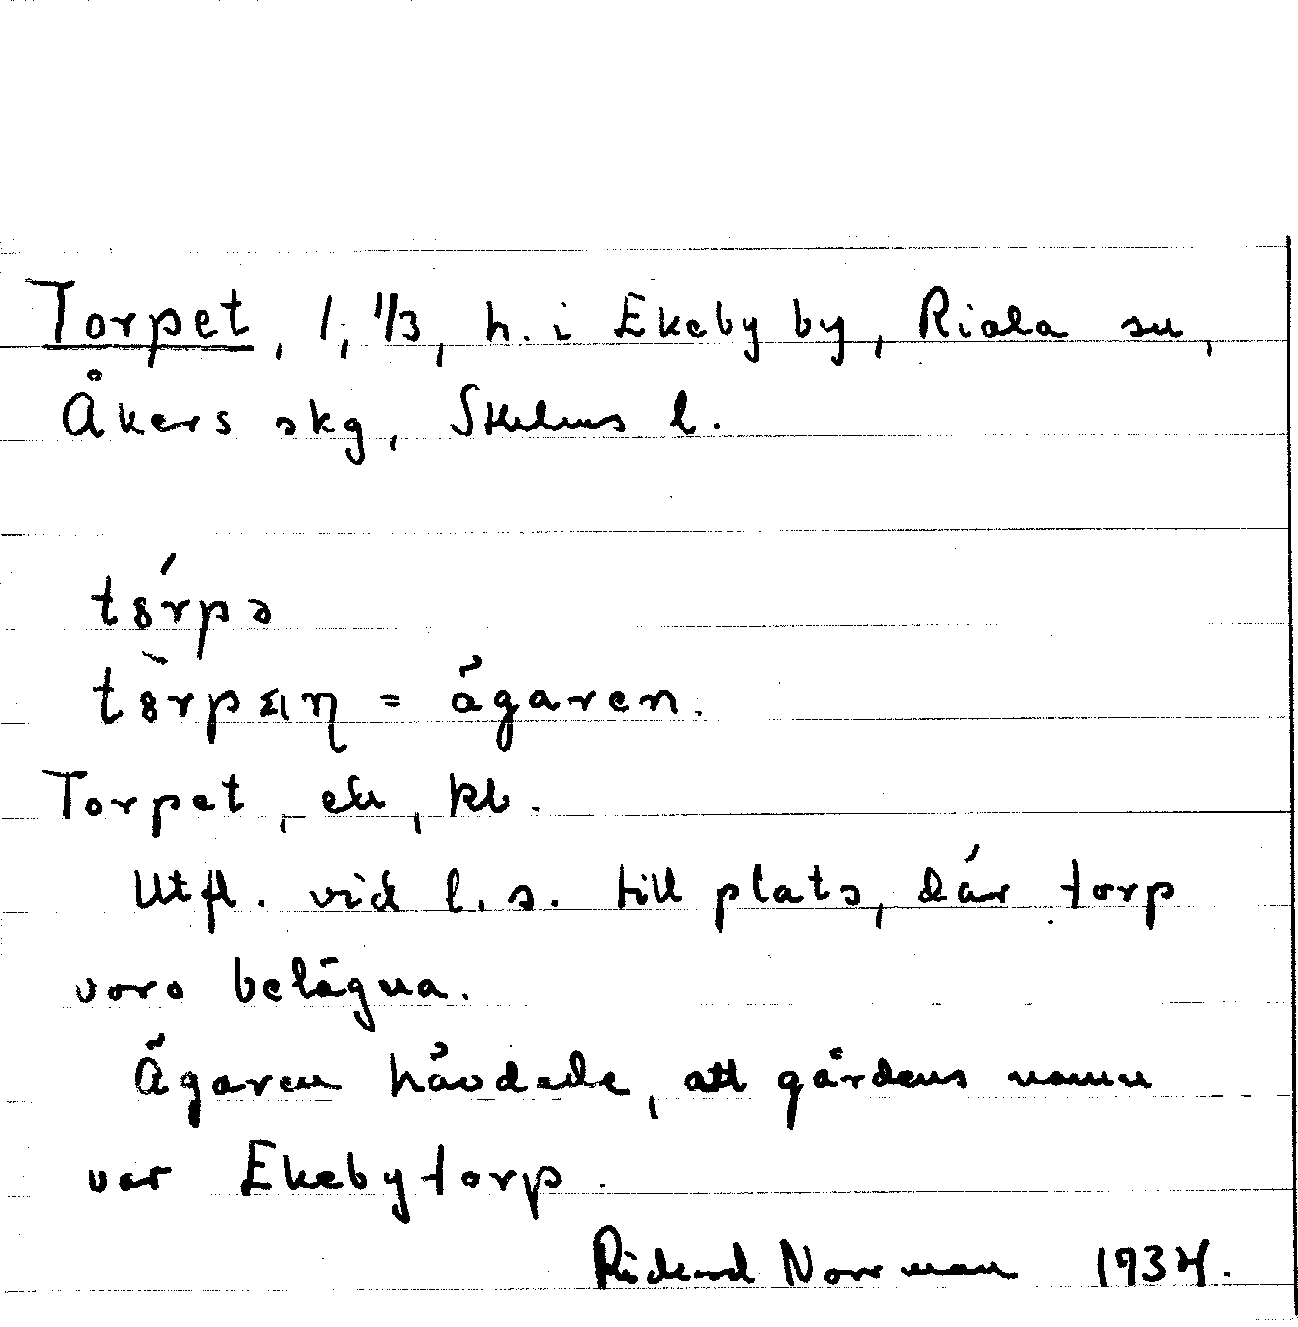 Torpet, 1, 1/3, h. i Ekeby by, Riala sn,
Åkers skg, Sthlms l.
tŏ́rpə
= ägaren.
Torpet, ek, kb.
Utfl. vid l. s. till plats, där torp
voro belägna.
Ägaren hävdade, att gårdens namn
var Ekebytorp.
Rickard Norrman 1934.